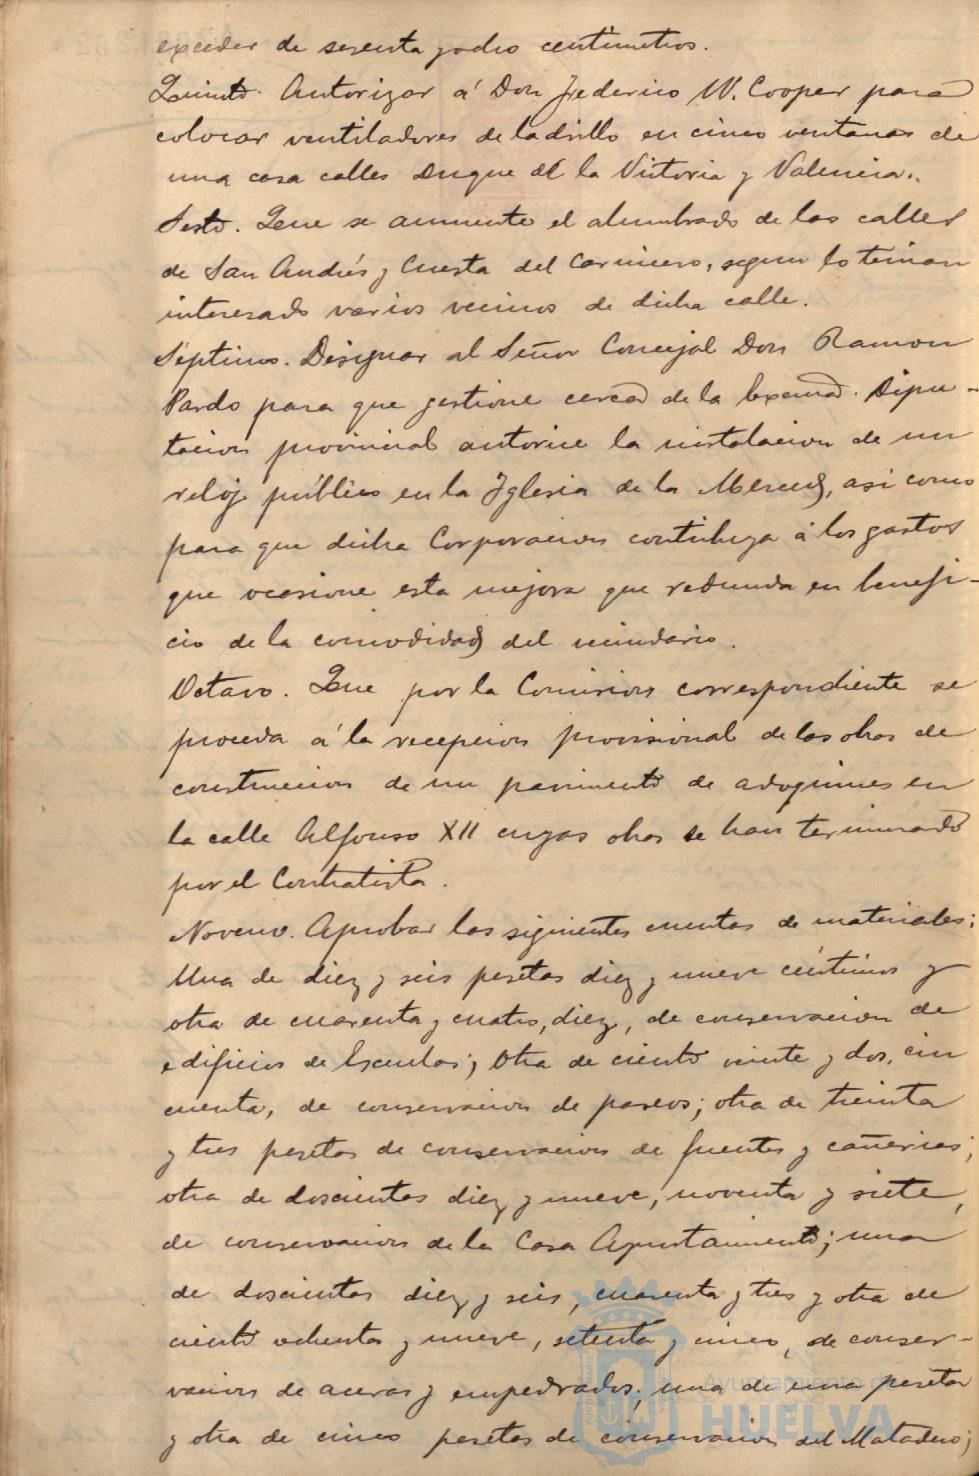 exceder de sesenta y ocho centimetros.
Quinto. Autorizar á Don Federico W. Cooper para
colocar ventiladores de ladrillo en cinco ventanas de
una casa calles Duque de la Victoria y Valencia.
Sesto. Que se aumente el alumbrado de las calles
de San Andrés y Cuesta del Carnicero, segun lo tenian
interesado varios vecinos de dicha calle.
Séptimo. Designar al Señor Concejal Don Ramon
Pardo para que gestione cerca de la Excma. Dipu-
tacion provincial autorice la instalacion de un
reloj público en la Iglesia de la Merced, asi como
para que dicha Corporacion contribuya á los gastos
que ocasione esta mejora que redunda en benefi-
cio de la comodidad del vecindario.
Octavo. Que por la Comision correspondiente se
proceda á la recepcion provisional de las obras de
construccion de un pavimento de adoquines en
la calle Alfonso XII cuyas obras se han terminado
por el Contratista.
Noveno. Aprobar las siguientes cuentas de materiales:
Una de diez y seis pesetas diez y nueve céntimos y
otra de cuarenta y cuatro, diez, de conservacion de
edificios de Escuelas; Otra de ciento veinte y dos, cin
cuenta, de conservacion de paseos; otra de treinta
y tres pesetas de conservacion de fuentes y cañerias;
otra de doscientas diez y nueve, noventa y siete,
de conservacion de la Casa Ayuntamiento; una
de doscientas diez y seis, cuarenta y tres y otra de
ciento ochenta y nueve, setenta y cinco, de conser-
vacion de aceras y empedrados; una de una peseta
y otra de cinco pesetas de conservacion del Matadero;
Ayuntamiento de
HUELVA